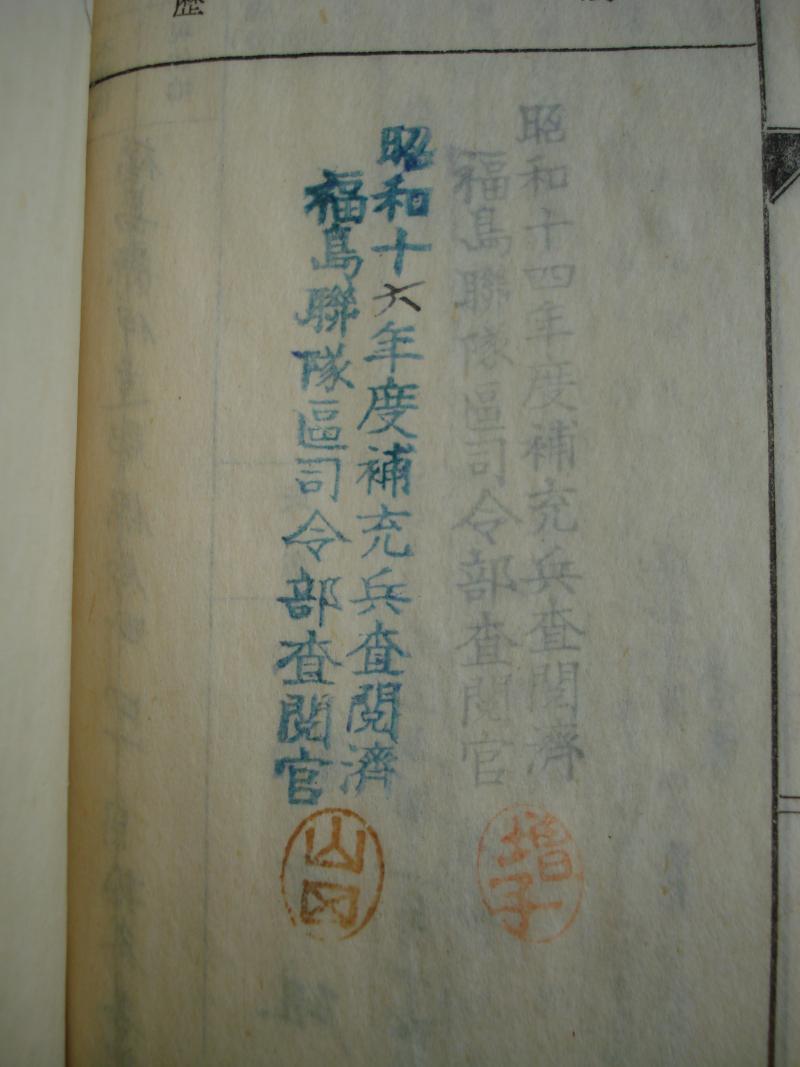 歴
昭和十四年度補充兵査閲済
福島聯隊區司令部査閲官
増子
昭和十六年度補充兵査閲濟
福島聯隊區司令部査閲官
山田